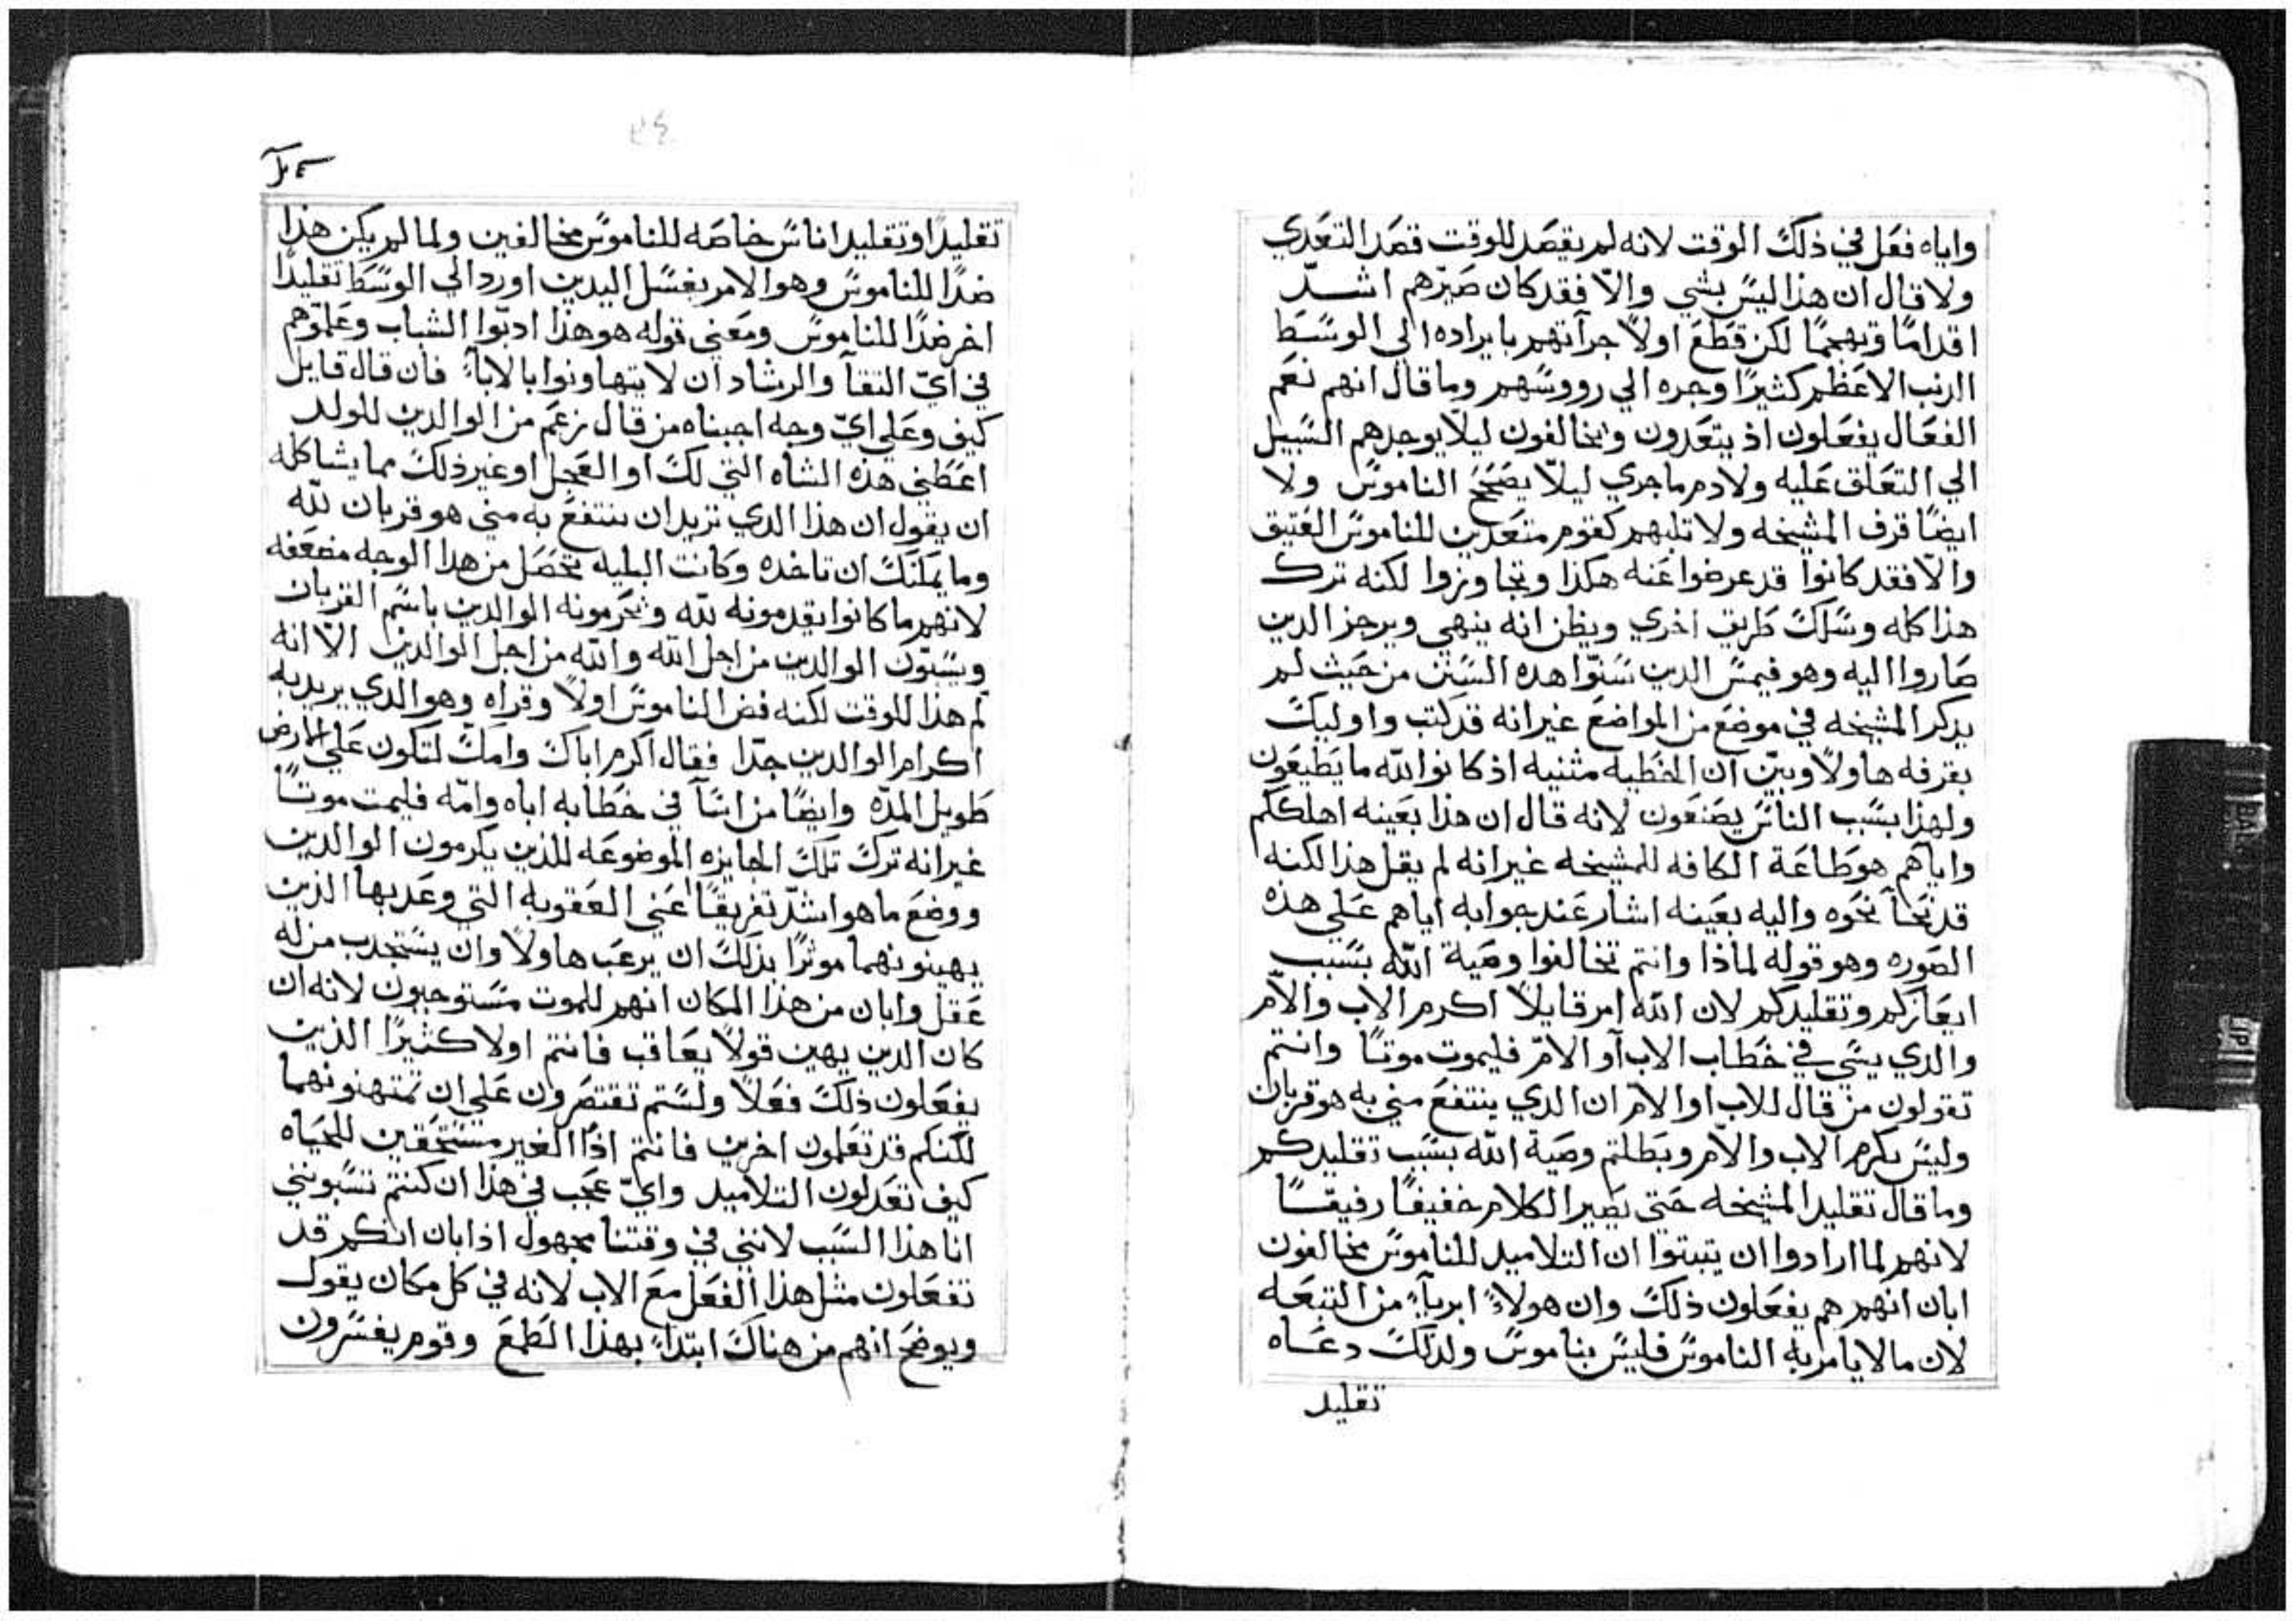 واياه فعل في ذلك الوقت لانه لم يقصد للوقت قصد التعدي
ولا قال ان هذا ليس بشي والّا فقد كان صيّرهم اشدّ
اقدامًا وتهجمًا لكن قطع اولًا جرآتهم بايراده الي الوسط
الدنب الاعظم كثيرًا وجره الي رووسهم وما قال انهم نعم
الفعال يفعلون اذ يتعدون ويخالفون ليلّا يوجدهم السبيل
الي التعلق عليه ولا دم ما جري ليلّا يصحح الناموس ولا
ايضًا قرف المشيخه ولا تلبهم كقوم متعدين للناموس العتيق
والّا فقد كانوا قد عرضوا عنه هكذا وتجاوزوا لكنه ترك
هذا كله وسلك طريق اخري ويظن انه ينهي ويرجز الدين
صاروا اليه وهو فيمس الدين سنّوا هده السنن من حيث لم
يدكر المشيخه في موضع من المواضع غير انه قد كتب واوليك
بقرفه هاولًا وبيّن ان الخطيه مثنيه اذ كانوا لله ما يطيعون
ولهذا بسبب الناس يصنعون لانه قال ان هذا بعينه اهلككم
واياهم هو طاعة الكافه للمشيخه غير انه لم يقل هذا لكنه
قد نحآ نحوه واليه بعينه اشار عند جوابه اياهم علي هذه
الصوره وهو قوله لماذا وانتم تخالفوا وصية الله بسبب
ايعازكم وتقليدكم لان الله امر قايلًا اكرم الاب والام
والدي يسي في خطاب الاب او الام فليموت موتًا وانتم
تقولون من قال للاب او الام ان الدي ينتفع مني به هو قربان
وليس يكرم الاب والام وبطلتم وصية الله بسبب تقليدكم
وما قال تقليد المشيخه حتي يصير الكلام خفيفًا رفيقًا
لانهم لما ارادوا ان يتبتوا ان التلاميد للناموس مخالفون
ابان انهم هم يفعلون ذلك وان هولاء ابريآء من التبعه
لان ما لا يامر به الناموس فليس بناموس ولدلك دعاه
تقليد
تقليدًا وتقليد اناس خاصه للناموس مخالفين ولما لم يكن هذا
ضدًا للناموس وهو الامر بغسل اليدين اورد الي الوسط تقليدًا
اخر ضدًا للناموس ومعني قوله هو هذا ادبّوا الشباب وعلموهم
في آيّ التقآ والرشاد ان لا يتهاونوا بالابآء فان قال قايل
كيف وعلي ايّ وجه اجبناه من قال زعم من الوالدين للولد
اعطني هذه الشاه التي لك او العجل او غير ذلك مما يشاكله
ان يقول ان هذا الدي تريد ان تنتفع به مني هو قربان لله
وما يمكنك ان تاخده وكانت البليه تحصل من هدا الوجه مضعفه
لانهم ما كانوا يقدمونه لله ويحرمونه الوالدين باسم القربان
ويسبّون الوالدين من اجل الله والله من اجل الوالدين الّا انه
لم هذا للوقت لكنه فض الناموس اولًا وقراه وهو الدي يريد به
اكرام الوالدين جدًا فقال اكرم اباك وامك لتكون علي الارض
طويل المدّه وايضًا من اسآ في خطابه اباه وامّه فليمت موتًا
غير انه ترك تلك الجايزه الموضوعه للذين يكرمون الوالدين
ووضع ما هو اشدّ تفريقًا اعني العقوبه التي وعد بها الذين
يهينونهما موثرًا بذلك ان يرعب هاولًا وان يستجدب من له
عقل وابان من هذا المكان انهم للموت مستوجبون لانه ان
كان الدين يهين قولًا يعاقب فانتم اولا كثيرًا الذين
يفعلون ذلك فعلًا ولستم تقتصرون علي ان تمتهنونهما
لكنكم قد تعلمون اخرين فانتم اذًا الغير مستحقين للحياه
كيف تعدلون التلاميد وايّ عجب في هذا ان كنتم تسبونني
انا هذا السبب لانني في وقتنا مجهول اذا بان انكم قد
تفعلون مثل هذا الفعل مع الاب لانه في كل مكان يقول
ويوضح انهم من هناك ابتداء بهذا الطمع وقوم يفسرون